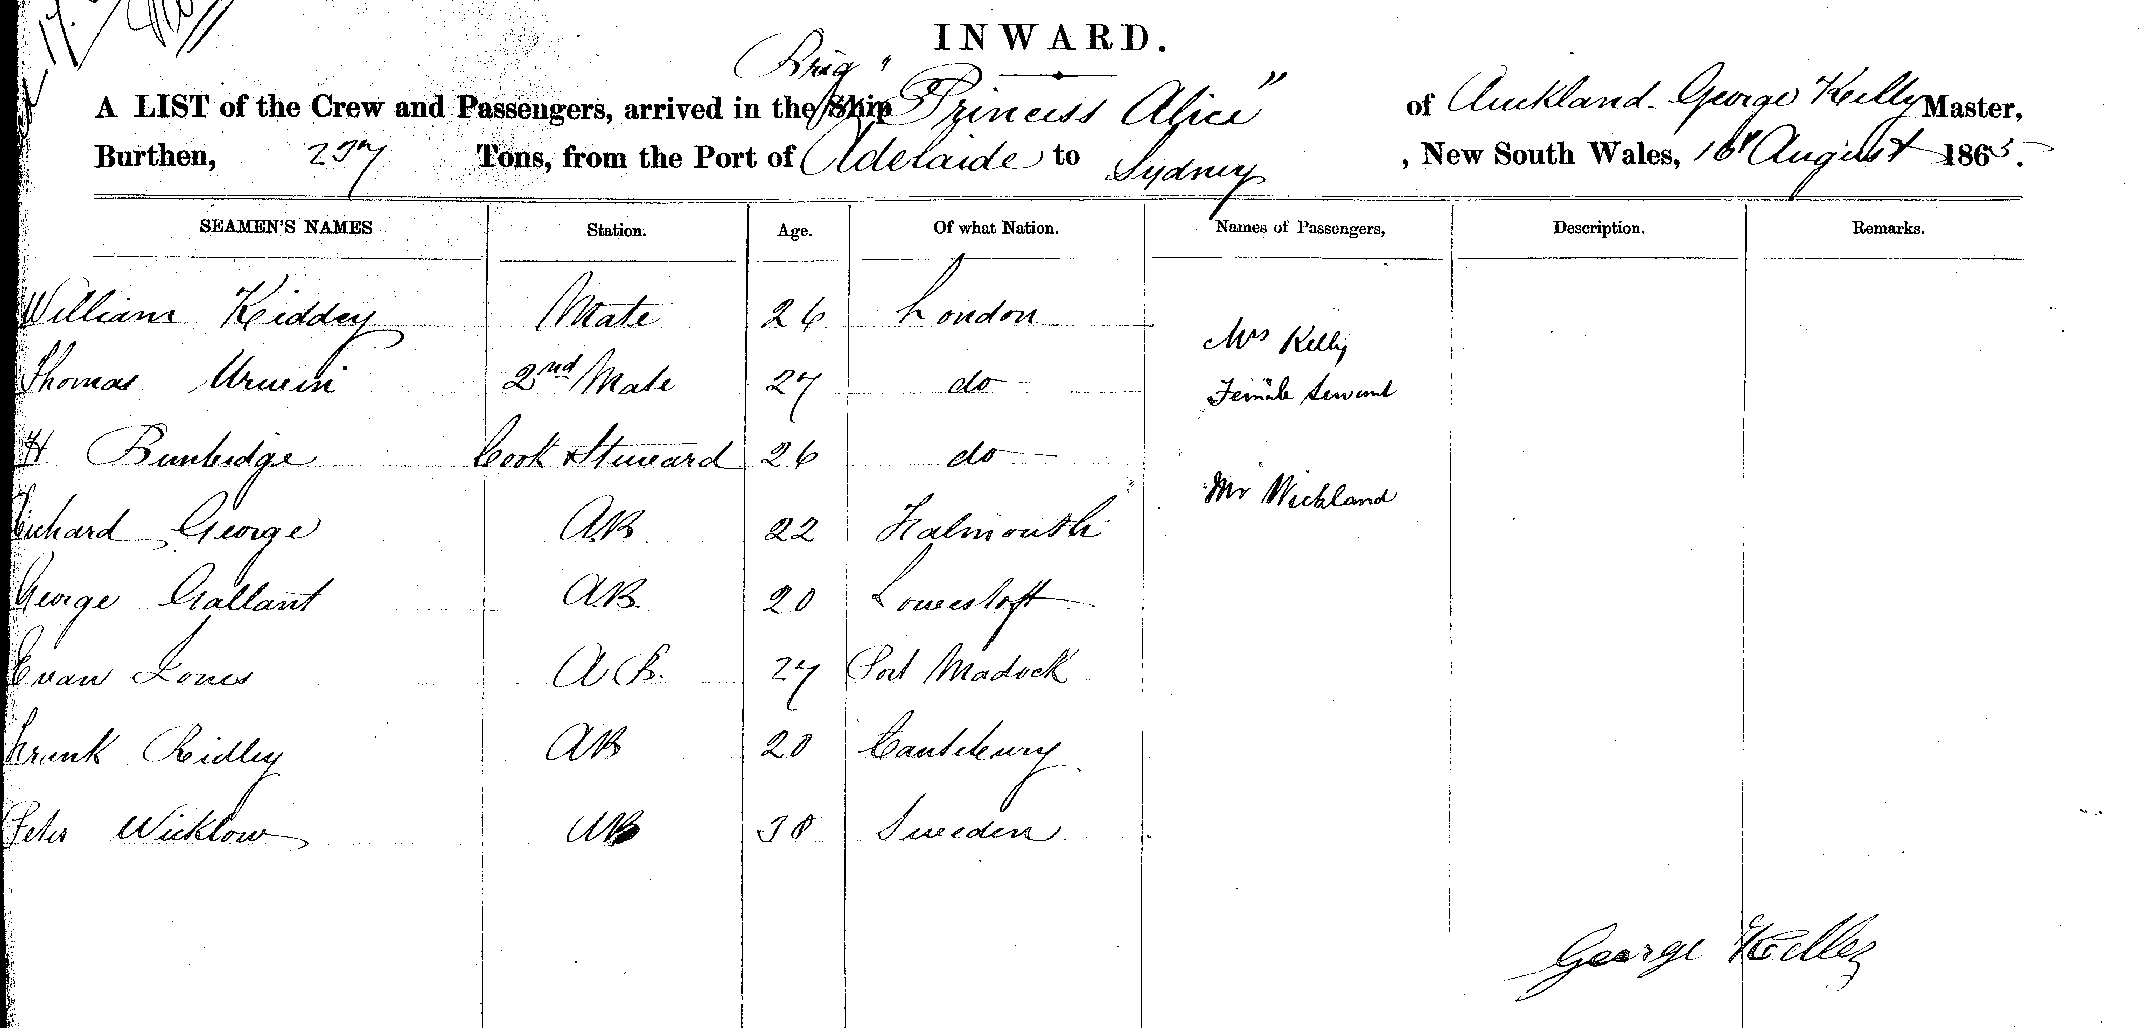 INWARD.
Brig "
A LIST of the Crew and Passengers, arrived in the Ship Princess Alice" of Auckland. George Kelly Master,
Burthen, 237 Tons, from the Port of Adelaide to Sydney, New South Wales, 16th August 1865.
SEAMEN'S NAMES Station. Age. Of what Nation. Names of Passengers, Description. Remarks.
William Kiddey Mate 26 London
Mrs Kelly
Thomas 2nd Mate 27 do
Female Servant
H Cook & Steward 26 do
Mr Wickland
Richard George AB 22 Falmouth
George Gallant AB 20 Lowestoft
Evan Jones AB. 27 Port Madock
Frank Ridley AB 20 Cantebury
Peter Wicklow AB 38 Sweden
George Kelley